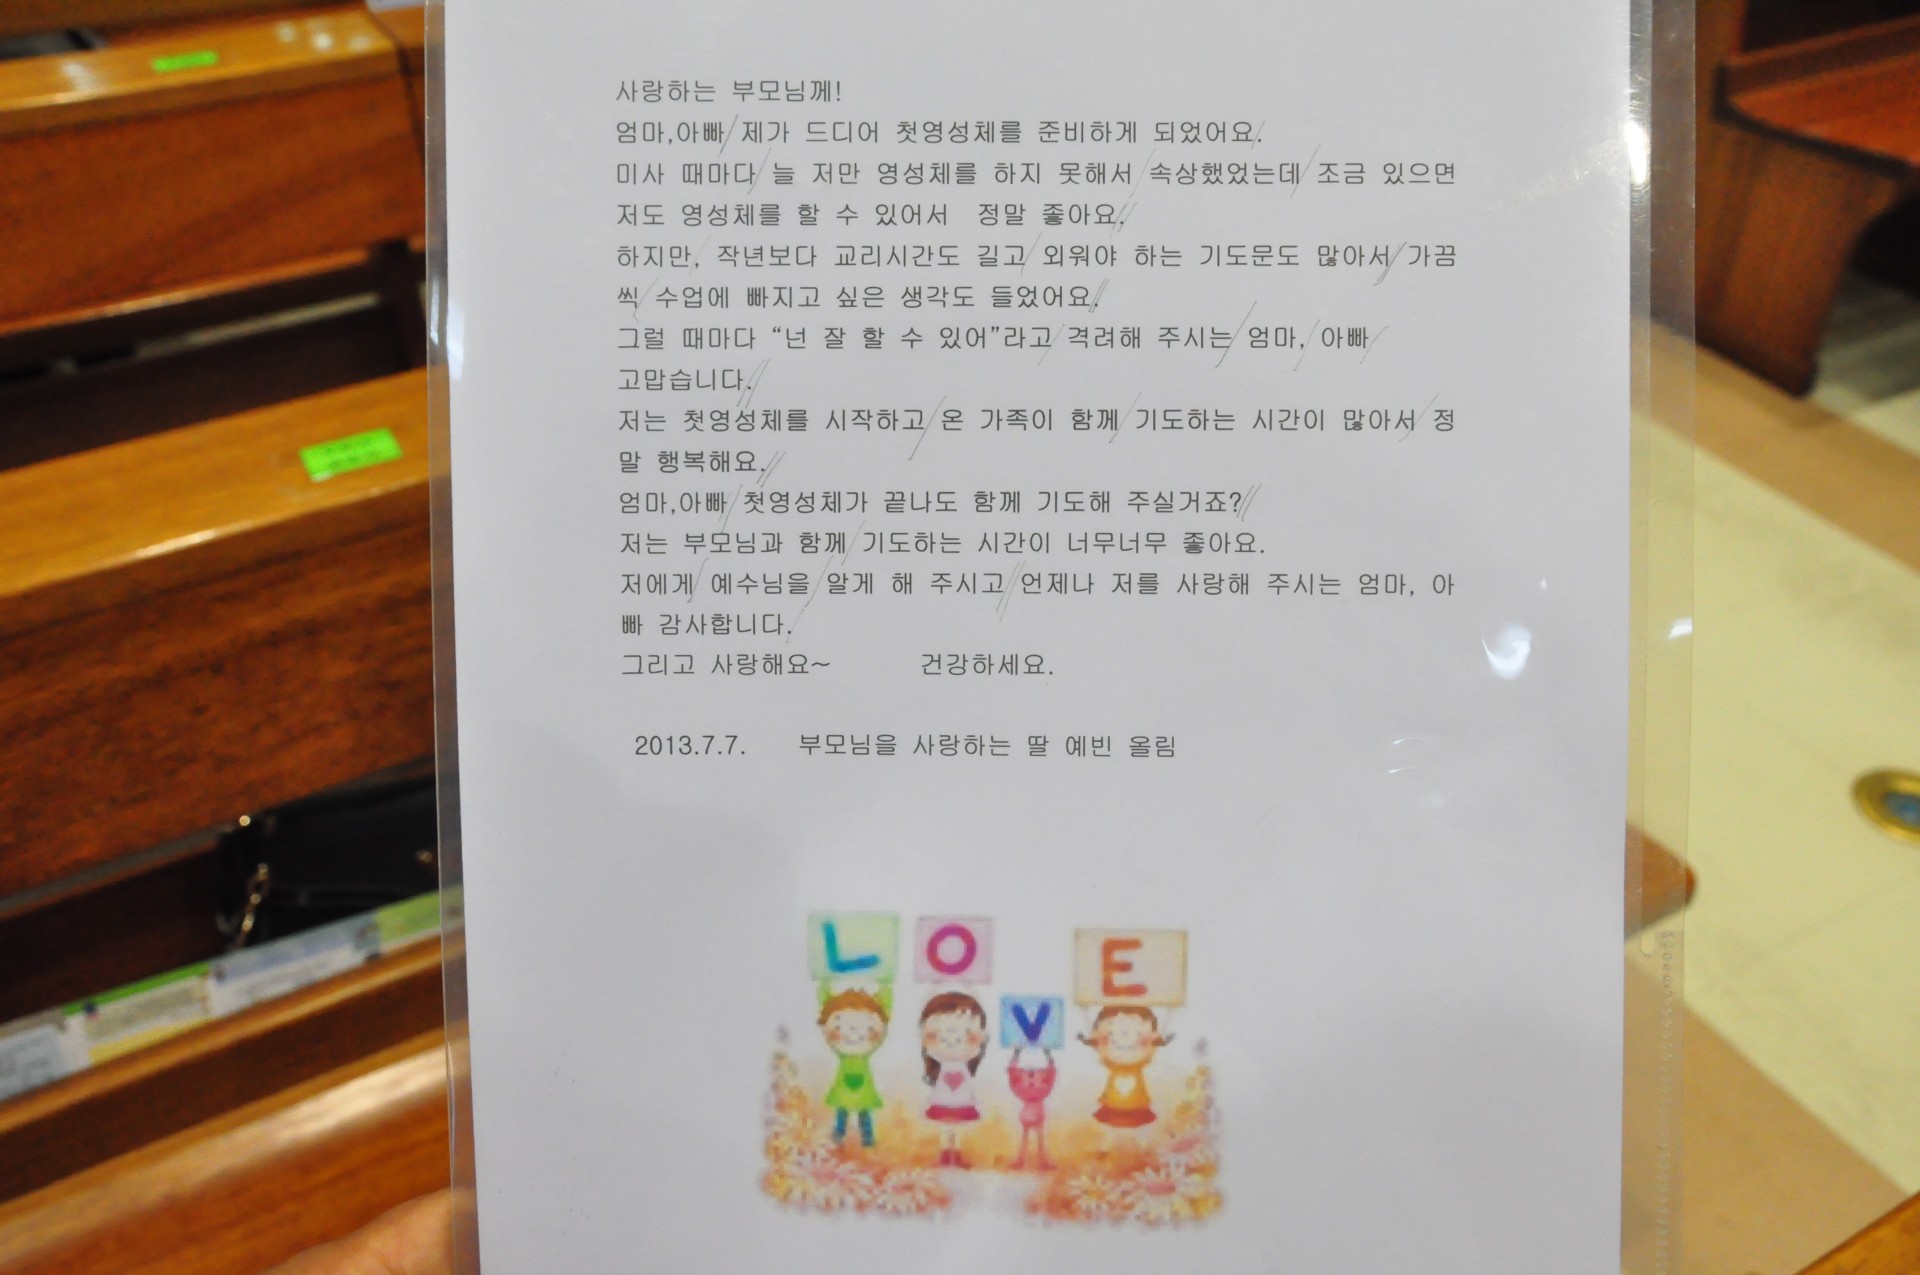 사랑하는 부모님께!
엄마,아빠 제가 드디어 첫영성체를 준비하게 되었어요.
미사 때마다 늘 저만 영성체를 하지 못해서 속상했었는데 조금 있으면
저도 영성체를 할 수 있어서 정말 좋아요.
하지만, 작년보다 교리시간도 길고 외워야 하는 기도문도 많아서 가끔
씩 수업에 빠지고 싶은 생각도 들었어요.
그럴 때마다 “넌 잘 할 수 있어”라고 격려해 주시는 엄마, 아빠
고맙습니다.
저는 첫영성체를 시작하고 온 가족이 함께 기도하는 시간이 많아서 정
말 행복해요.
엄마,아빠 첫영성체가 끝나도 함께 기도해 주실거죠?
저는 부모님과 함께 기도하는 시간이 너무너무 좋아요.
저에게 예수님을 알게 해 주시고 언제나 저를 사랑해 주시는 엄마, 아
빠 감사합니다.
그리고 사랑해요~ 건강하세요.
2013.7.7. 부모님을 사랑하는 딸 예빈 올림
L O V E